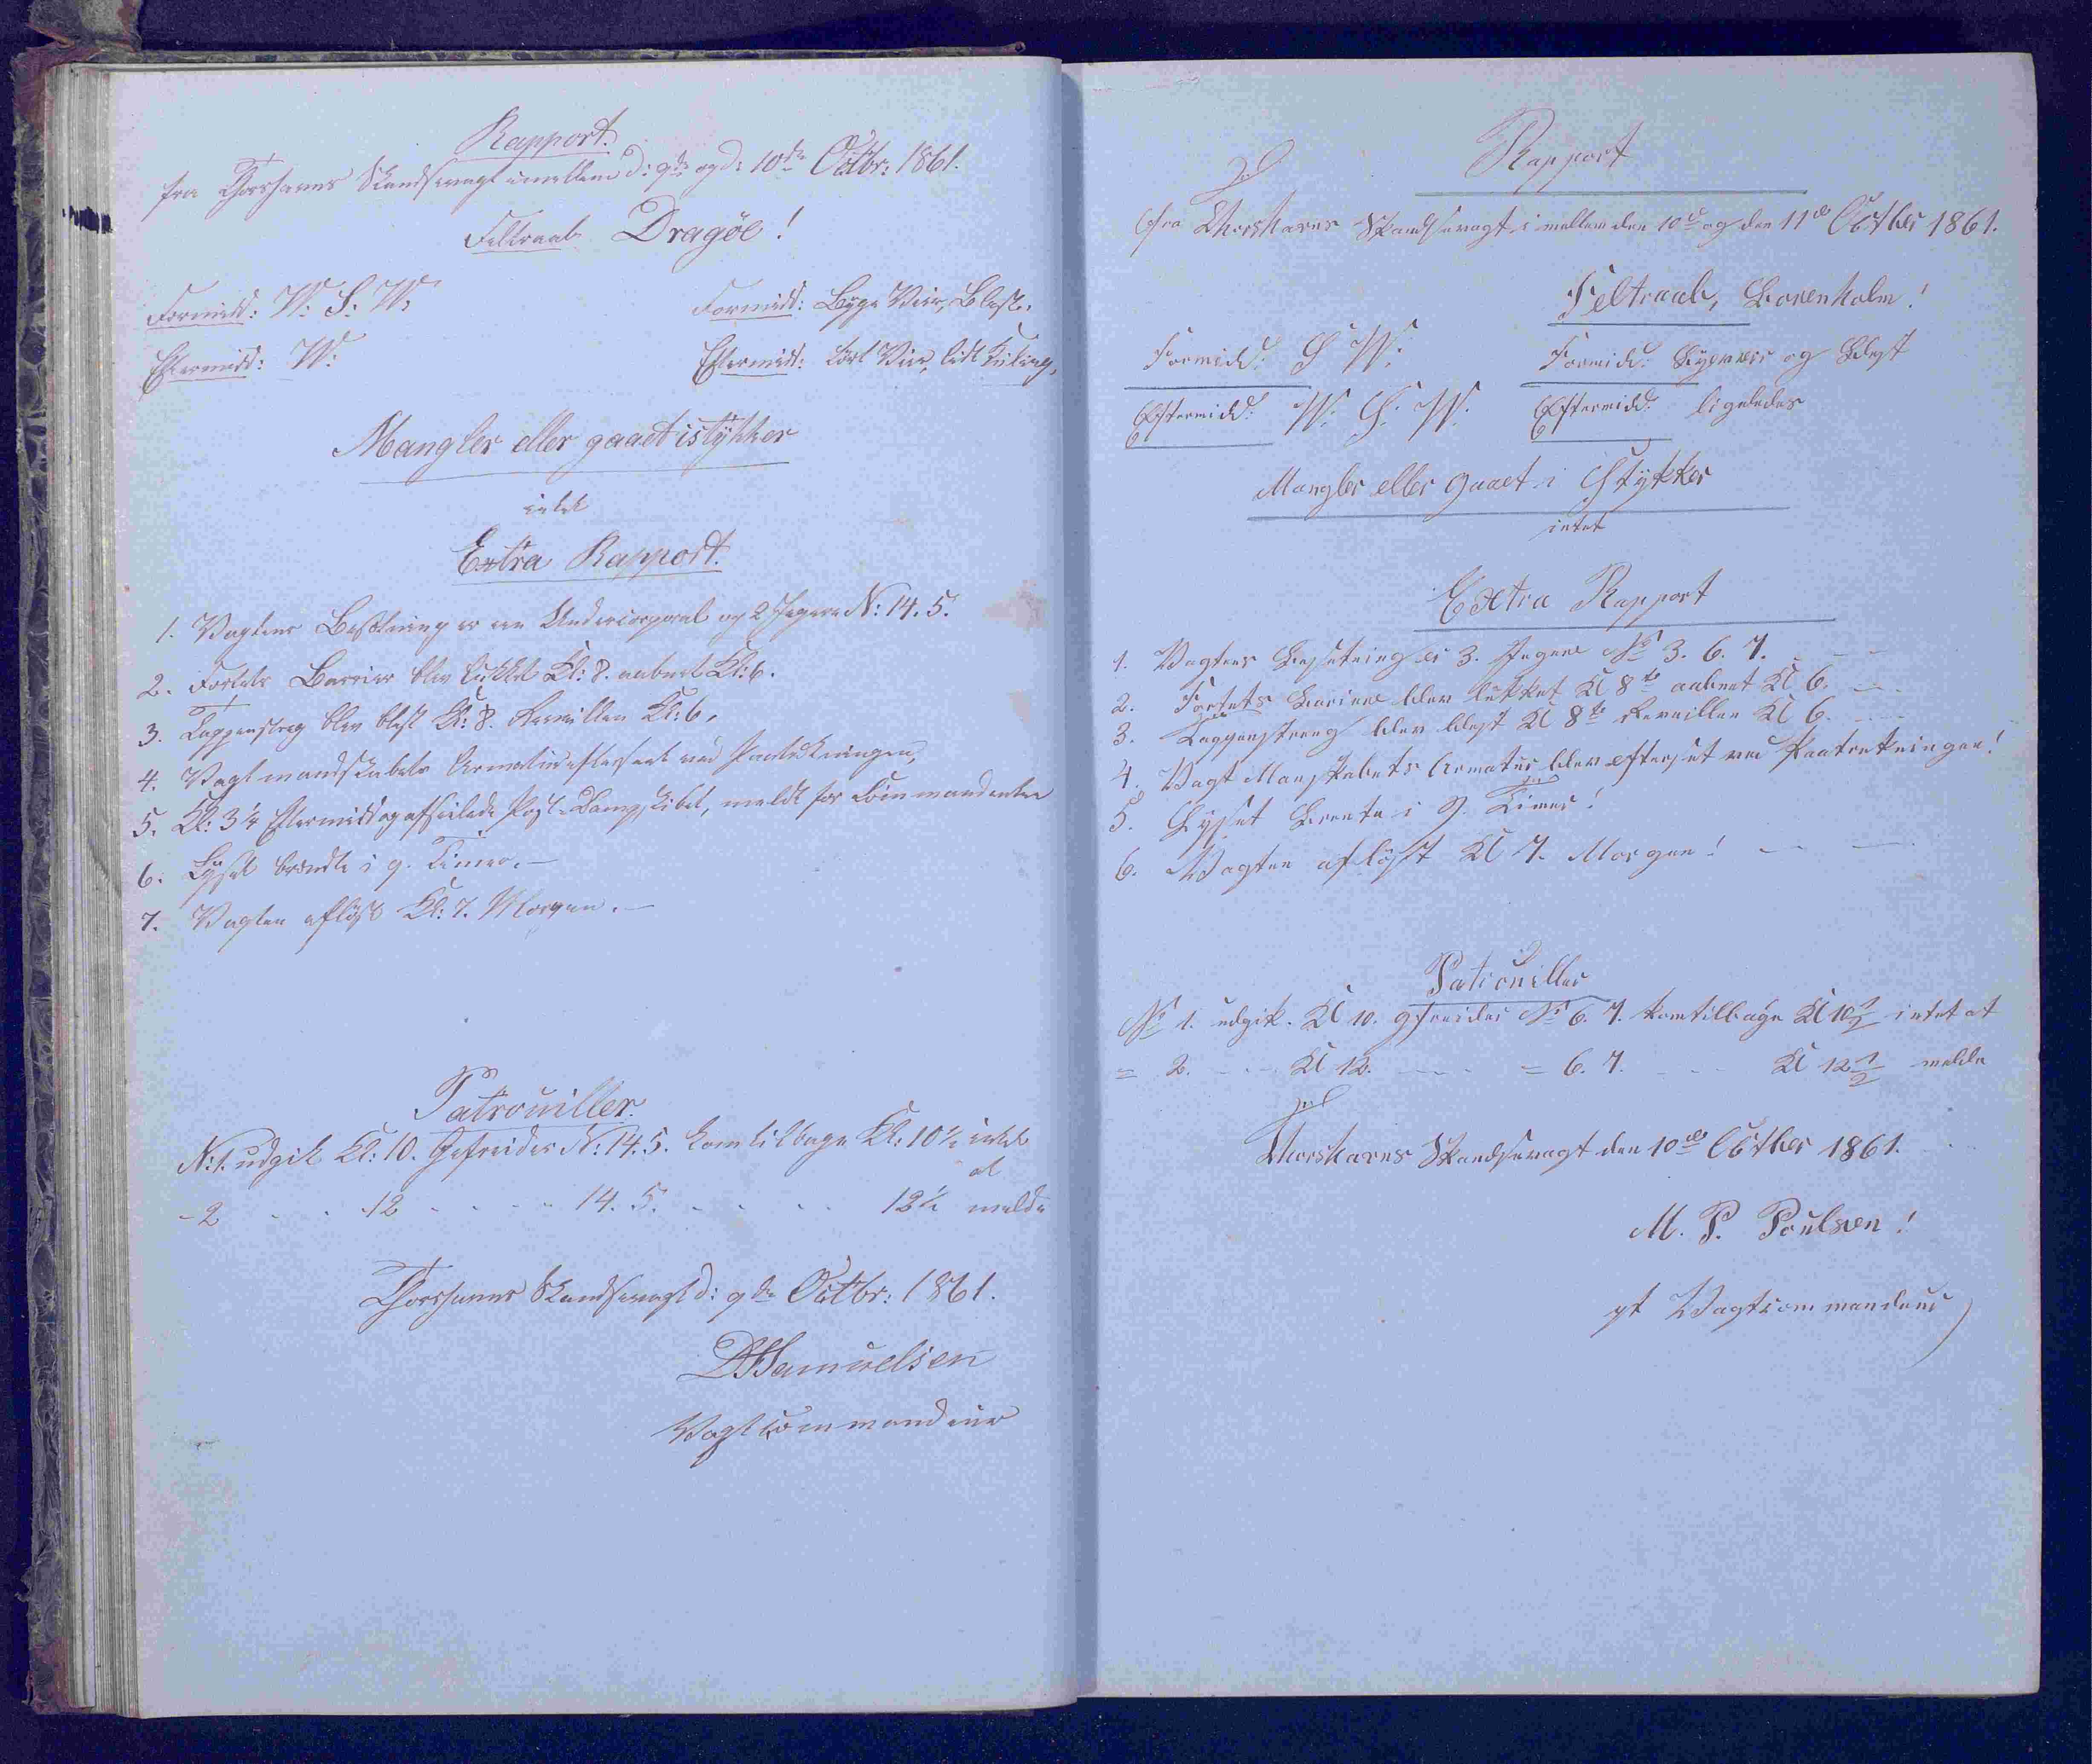 Rapport.
fra Thorshavns Skandsevagt imellem d: 9de og d: 10de Octbr: 1861.
Feltraab Dragöe!
Formidd: W: S: W:
Formidd: Byge Veir, Blæst.
Eftermidd: W:
Eftermidd: tört Veir, lidt Kuling,
Mangler eller gaaet istÿkker
intet
Extra Rapport.
1. Vagtens Besætning er een Undercorporal og 2 Jegere N: 14. 5.
2. Fortets Barrier blev lukket Kl: 8. aabnet Kl: 6.
3. Tappenstreg blev blæst Kl: 8. Reveillen Kl: 6.
4. Vagtmandskabets Armatur efterseet ved Paatrækningen,
5. Kl: 3¼ Eftermiddag afseilede Post-Dampskibet, meldt for Commandanten
6. Lyset brændte i 9. Timer. —
7. Vagten aflöst Kl: 7. Morgen. —
Patrouiller.
N: 1. udgik Kl: 10. Gefreider N: 14. 5. kom tilbage Kl: 10½ intet
at
- 2 - - 12 - - - - 14. 5. - - - - 12½ melde
Thorshavns Skandsevagt d: 9de Octbr: 1861.
Samuelsen
Vagtcommandeur
Rapport
fra Thorshavns Skandsevagt, imellem den 10de og den 11de Octber 1861.
Feltraab, Borenholm!
Formidd: S W:
Formidd: Bygeveir og Blæst
Eftermidd: W. S. W.
Eftermidd: ligeledes
Mangler eller gaaet i Stÿkker
intet
Extra Rapport
1. Vagtens Besetning er 3. Jegere No 3. 6. 7. - - -
2. Fortets Bariere blev lukket Kl 8te aabnet Kl 6. - -
3. Tappenstreng blev blest Kl 8te Reveillen Kl 6. - - -
4. Vagt Manskabets Armatur blev efterset ved Paatrekningen!
5. Lyset brente i 9. Timer!
6. Vagten aflöst Kl 7. Morgen! - - -
Patrouiller
No 1. udgik. Kl 10. gefreider No 6. 7. kom tilbage Kl 10½ intet at
= 2. - - - Kl 12. - - - - = 6. 7. - - - Kl 12½ melde
Thorshavns Skandsevagt den 10de Octber 1861.
M. P. Poulsen!
pt Vagtcommandeur